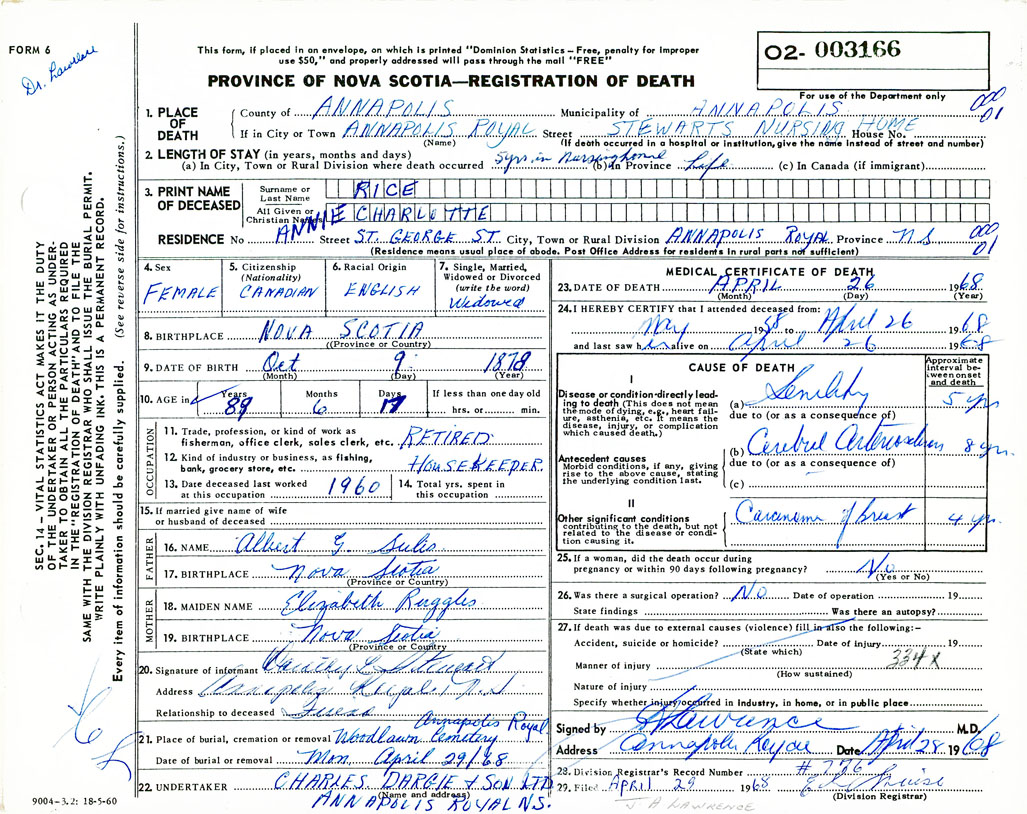 FORM 6
Dr. Lawrence
This form, if placed in an envelope, on which is printed "Dominion Statistics – Free, penalty for improper
use $50," and properly addressed will pass through the mail "FREE"
PROVINCE OF NOVA SCOTIA—REGISTRATION OF DEATH
02- 003166
For use of the Department only
000
01
1. PLACE OF DEATH
County of ANNAPOLIS Municipality of ANNAPOLIS
If in City or Town ANNAPOLIS ROYAL Street STEWARTS NURSING HOME House No.
(Name) (If death occurred in a hospital or institution, give the name instead of street and number)
2. LENGTH OF STAY (in years, months and days)
(a) In City, Town or Rural Division where death occurred 5 yrs. in Nursing home (b) In Province Life (c) In Canada (if immigrant)
3. PRINT NAME OF DECEASED
Surname or Last Name RICE
All Given or Christian Names ANNIE CHARLOTTE
RESIDENCE No Street ST. GEORGE ST. City, Town or Rural Division ANNAPOLIS ROYAL Province N S
000
01
(Residence means usual place of abode. Post Office Address for residents in rural parts not sufficient)
4. Sex FEMALE
5. Citizenship (Nationality) CANADIAN
6. Racial Origin ENGLISH
7. Single, Married, Widowed or Divorced (write the word) Widowed
8. BIRTHPLACE NOVA SCOTIA
(Province or Country)
9. DATE OF BIRTH Oct 9 1878
(Month) (Day) (Year)
10. AGE in Years 89 Months 6 Days 17 If less than one day old
hrs. or min.
OCCUPATION
11. Trade, profession, or kind of work as
fisherman, office clerk, sales clerk, etc. RETIRED
12. Kind of industry or business, as fishing,
bank, grocery store, etc. HOUSEKEEPER.
13. Date deceased last worked
at this occupation 1960
14. Total yrs. spent in
this occupation
15. If married give name of wife
or husband of deceased
FATHER
16. NAME Albert G. Sulis
17. BIRTHPLACE Nova Scotia
(Province or Country)
MOTHER
18. MAIDEN NAME Elizabeth Ruggles
19. BIRTHPLACE Nova Scotia
(Province or Country)
20. Signature of informant
Address Annapolis Royal, N.S.
Relationship to deceased
21. Place of burial, cremation or removal Woodlawn Cemetery Annapolis Royal
Date of burial or removal Mon. April 29/68
22. UNDERTAKER CHARLES DARGIE & SON LTD
(Name and address)
ANNAPOLIS ROYAL N.S.
9004–3.2: 18-5-60
MEDICAL CERTIFICATE OF DEATH
23. DATE OF DEATH APRIL 26 1968
(Month) (Day) (Year)
24. I HEREBY CERTIFY that I attended deceased from:
May 1968 to April 26 1968
and last saw h alive on April 26 1968
CAUSE OF DEATH
Approximate interval between onset and death
I
Disease or condition directly leading to death (This does not mean the mode of dying, e.g., heart failure, asthenia, etc. It means the disease, injury, or complication which caused death.)
(a) Senility 5 yrs
due to (or as a consequence of)
Antecedent causes
Morbid conditions, if any, giving rise to the above cause, stating the underlying condition last.
(b) Cerebral Arteriosclerosis 8 yrs.
due to (or as a consequence of)
(c)
II
Other significant conditions
contributing to the death, but not related to the disease or condition causing it.
Carcinoma of breast 4 yrs.
25. If a woman, did the death occur during
pregnancy or within 90 days following pregnancy? No
(Yes or No)
26. Was there a surgical operation? No Date of operation 19
State findings Was there an autopsy?
27. If death was due to external causes (violence) fill in also the following:-
Accident, suicide or homicide? Date of injury 19
(State which)
334x
Manner of injury
(How sustained)
Nature of injury
Specify whether injury occurred in Industry, in home, or in public place
Signed by Lawrence M.D.
Address Annapolis Royal Date April 28 1968
28. Division Registrar's Record Number #776
29. Filed APRIL 29 1968
(Division Registrar)
J A LAWRENCE
SEC. 14 – VITAL STATISTICS ACT MAKES IT THE DUTY
OF THE UNDERTAKER OR PERSON ACTING AS UNDER-
TAKER TO OBTAIN ALL THE PARTICULARS REQUIRED
IN THE "REGISTRATION OF DEATH" AND TO FILE THE
SAME WITH THE DIVISION REGISTRAR WHO SHALL ISSUE THE BURIAL PERMIT.
WRITE PLAINLY WITH UNFADING INK. THIS IS A PERMANENT RECORD.
Every item of information should be carefully supplied. (See reverse side for instructions.)